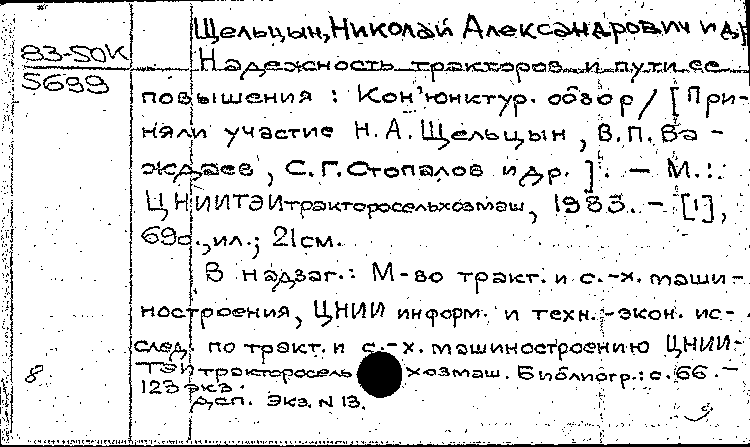 Щельцын, Николай Александрович и др
83-50К
Надежность тракторов и пути ее
5699
повышения : Кон'юнктур. обзор / [При-
няли участие Н.А. Щельцын, В.П. Ва-
ждаев, С.Г. Стопалов и др.]. — М.:
ЦНИИТЭИтракторосельхозмаш, 1983. — [1],
69с., ил.; 21 см.
В надзаг.: М-во тракт. и с.-х. маши-
ностроения, ЦНИИ информ. и техн.-экон. ис-
след. по тракт. и с.-х. машиностроению ЦНИИ-
8 ТЭИтракторосельхозмаш. Библиогр.: с. 66. —
123 экз.
Деп. Экз. N 13.